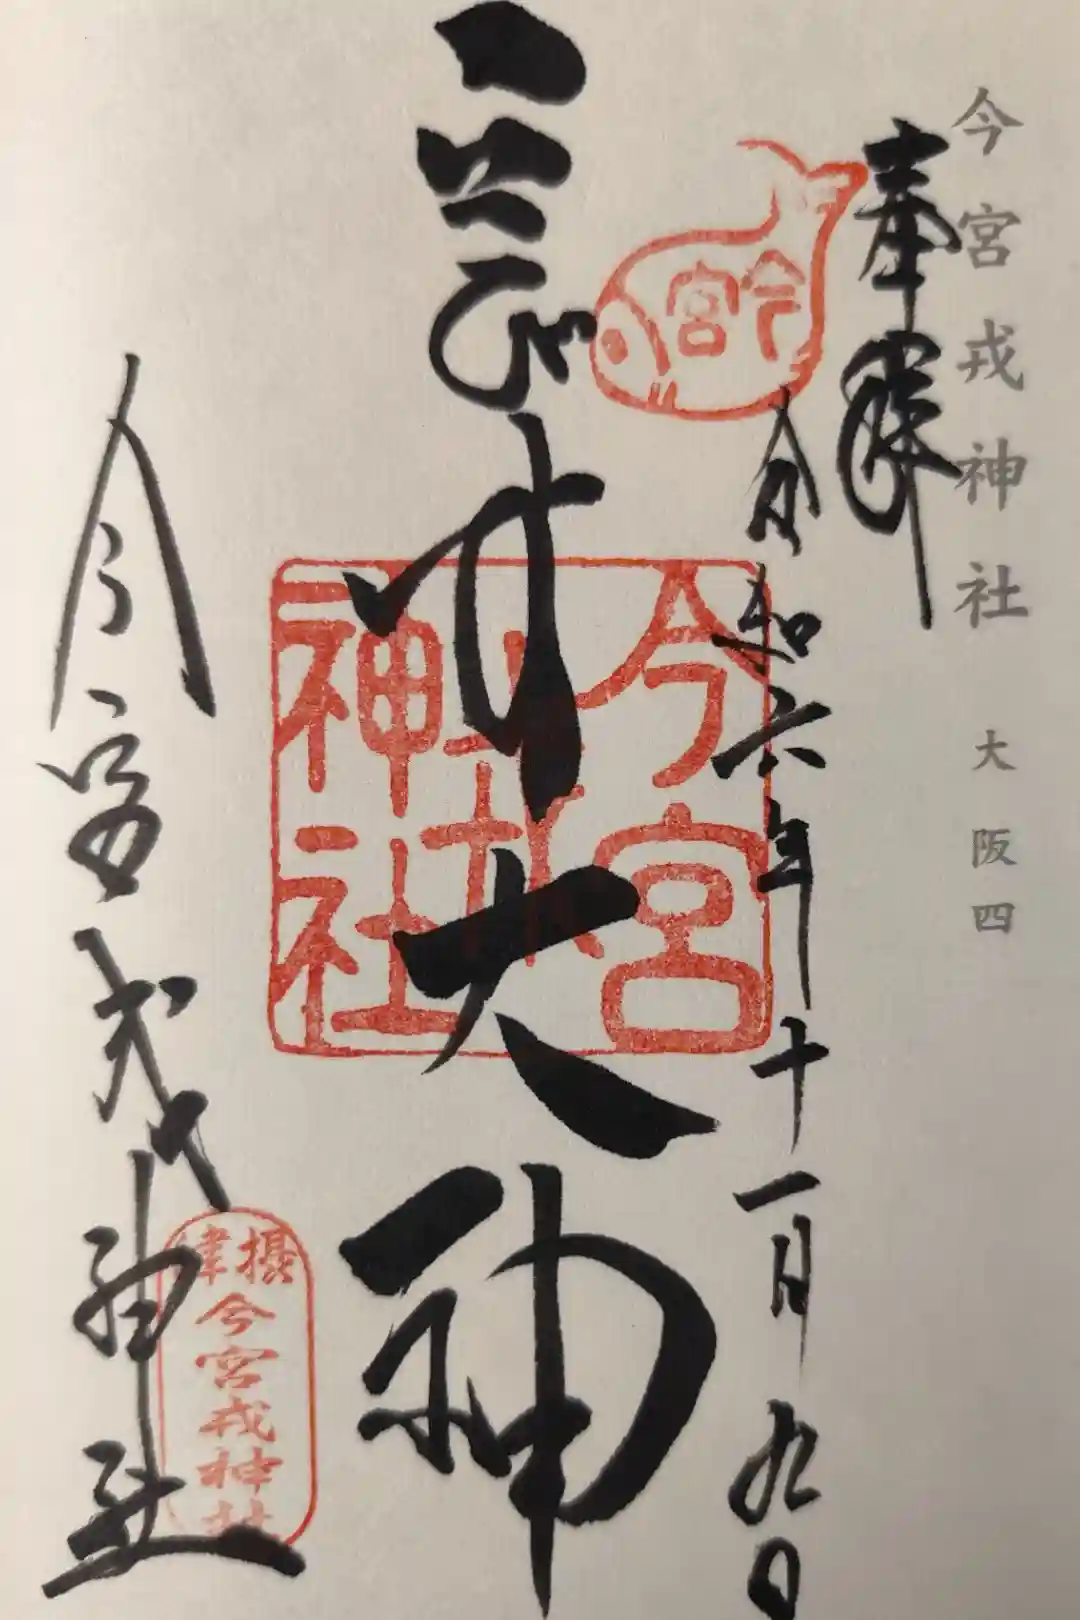 今宮戎神社 大阪四
奉拝
今宮
令和六年十一月九日
ゑびす大神
今宮戎神社
今宮戎神社
摂津
今宮戎神社